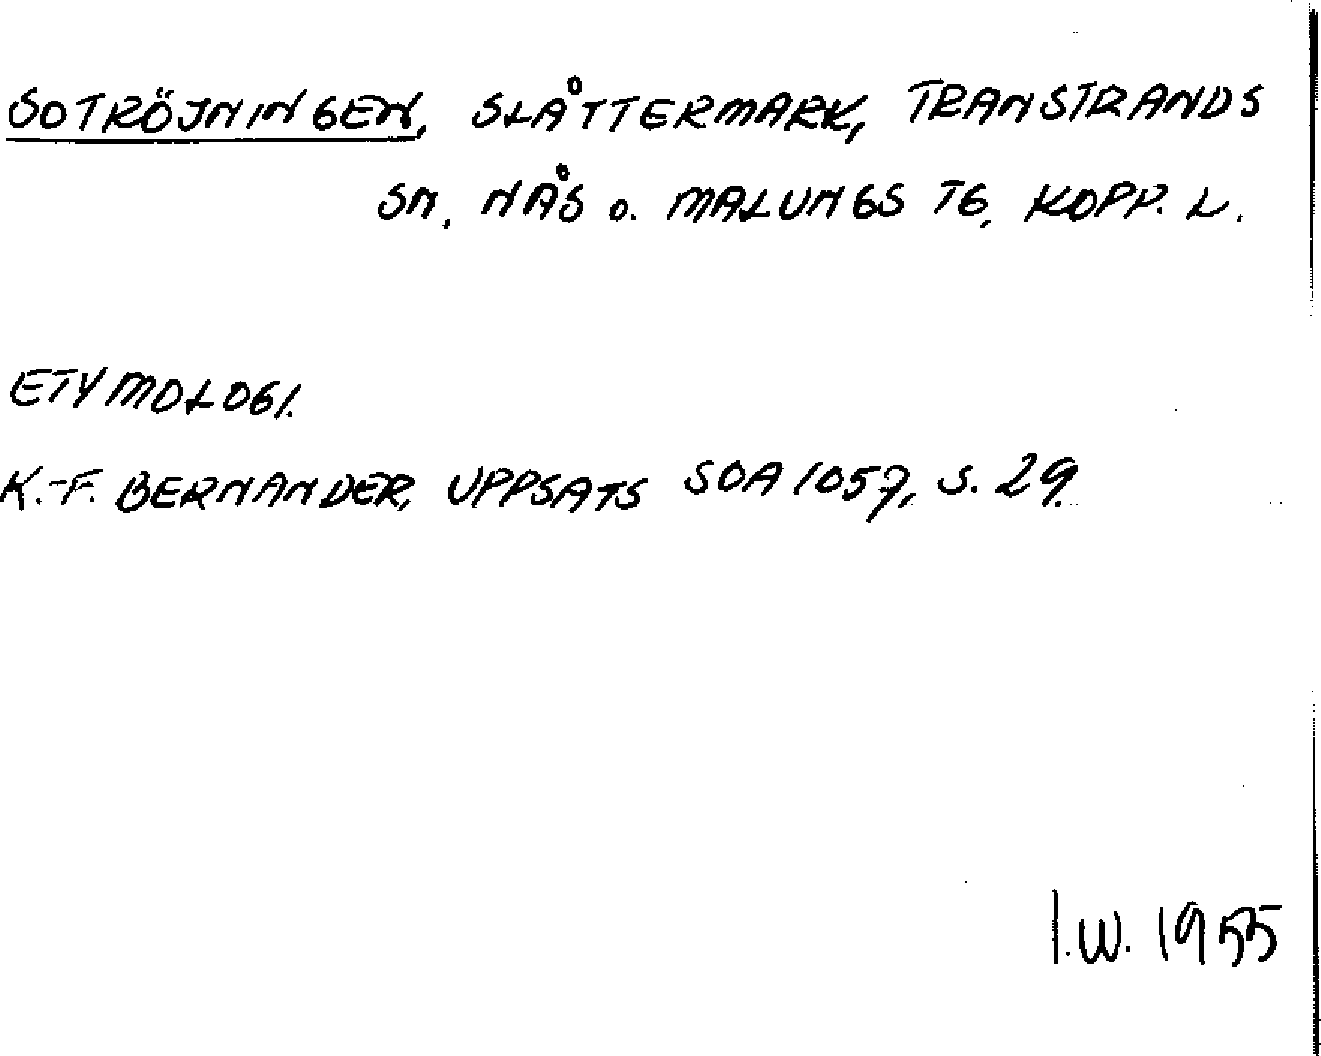 SOTRÖJNINGEN, SLÅTTERMARK, TRANSTRANDS
SN, NÅS o. MALUNGS TG, KOPP. L.
ETYMOLOGI.
K.-F. BERNANDER, UPPSATS SOA 1057, S. 29.
I.W. 1955